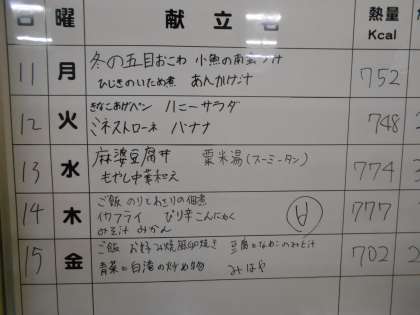 日 曜 献立名 熱量
Kcal
11 月 冬の五目おこわ 小魚の南蛮漬け 752
ひじきのいため煮 あんかけ汁
12 火 きなこあげパン ハニーサラダ 748
ミネストローネ バナナ
13 水 麻婆豆腐丼 粟米湯(スーミータン) 774
もやし中華和え
14 木 ご飯 のりとあさりの佃煮 777
イカフライ ぴり辛こんにゃく
みそ汁 みかん
15 金 ご飯 お好み焼風卵焼き 豆腐となめこのみそ汁 702
青菜と白滝の炒め物 みはや